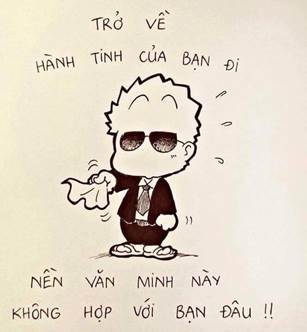 TRỞ VỀ
HÀNH TINH CỦA BẠN ĐI
NỀN VĂN MINH NÀY
KHÔNG HỢP VỚI BẠN ĐÂU !!